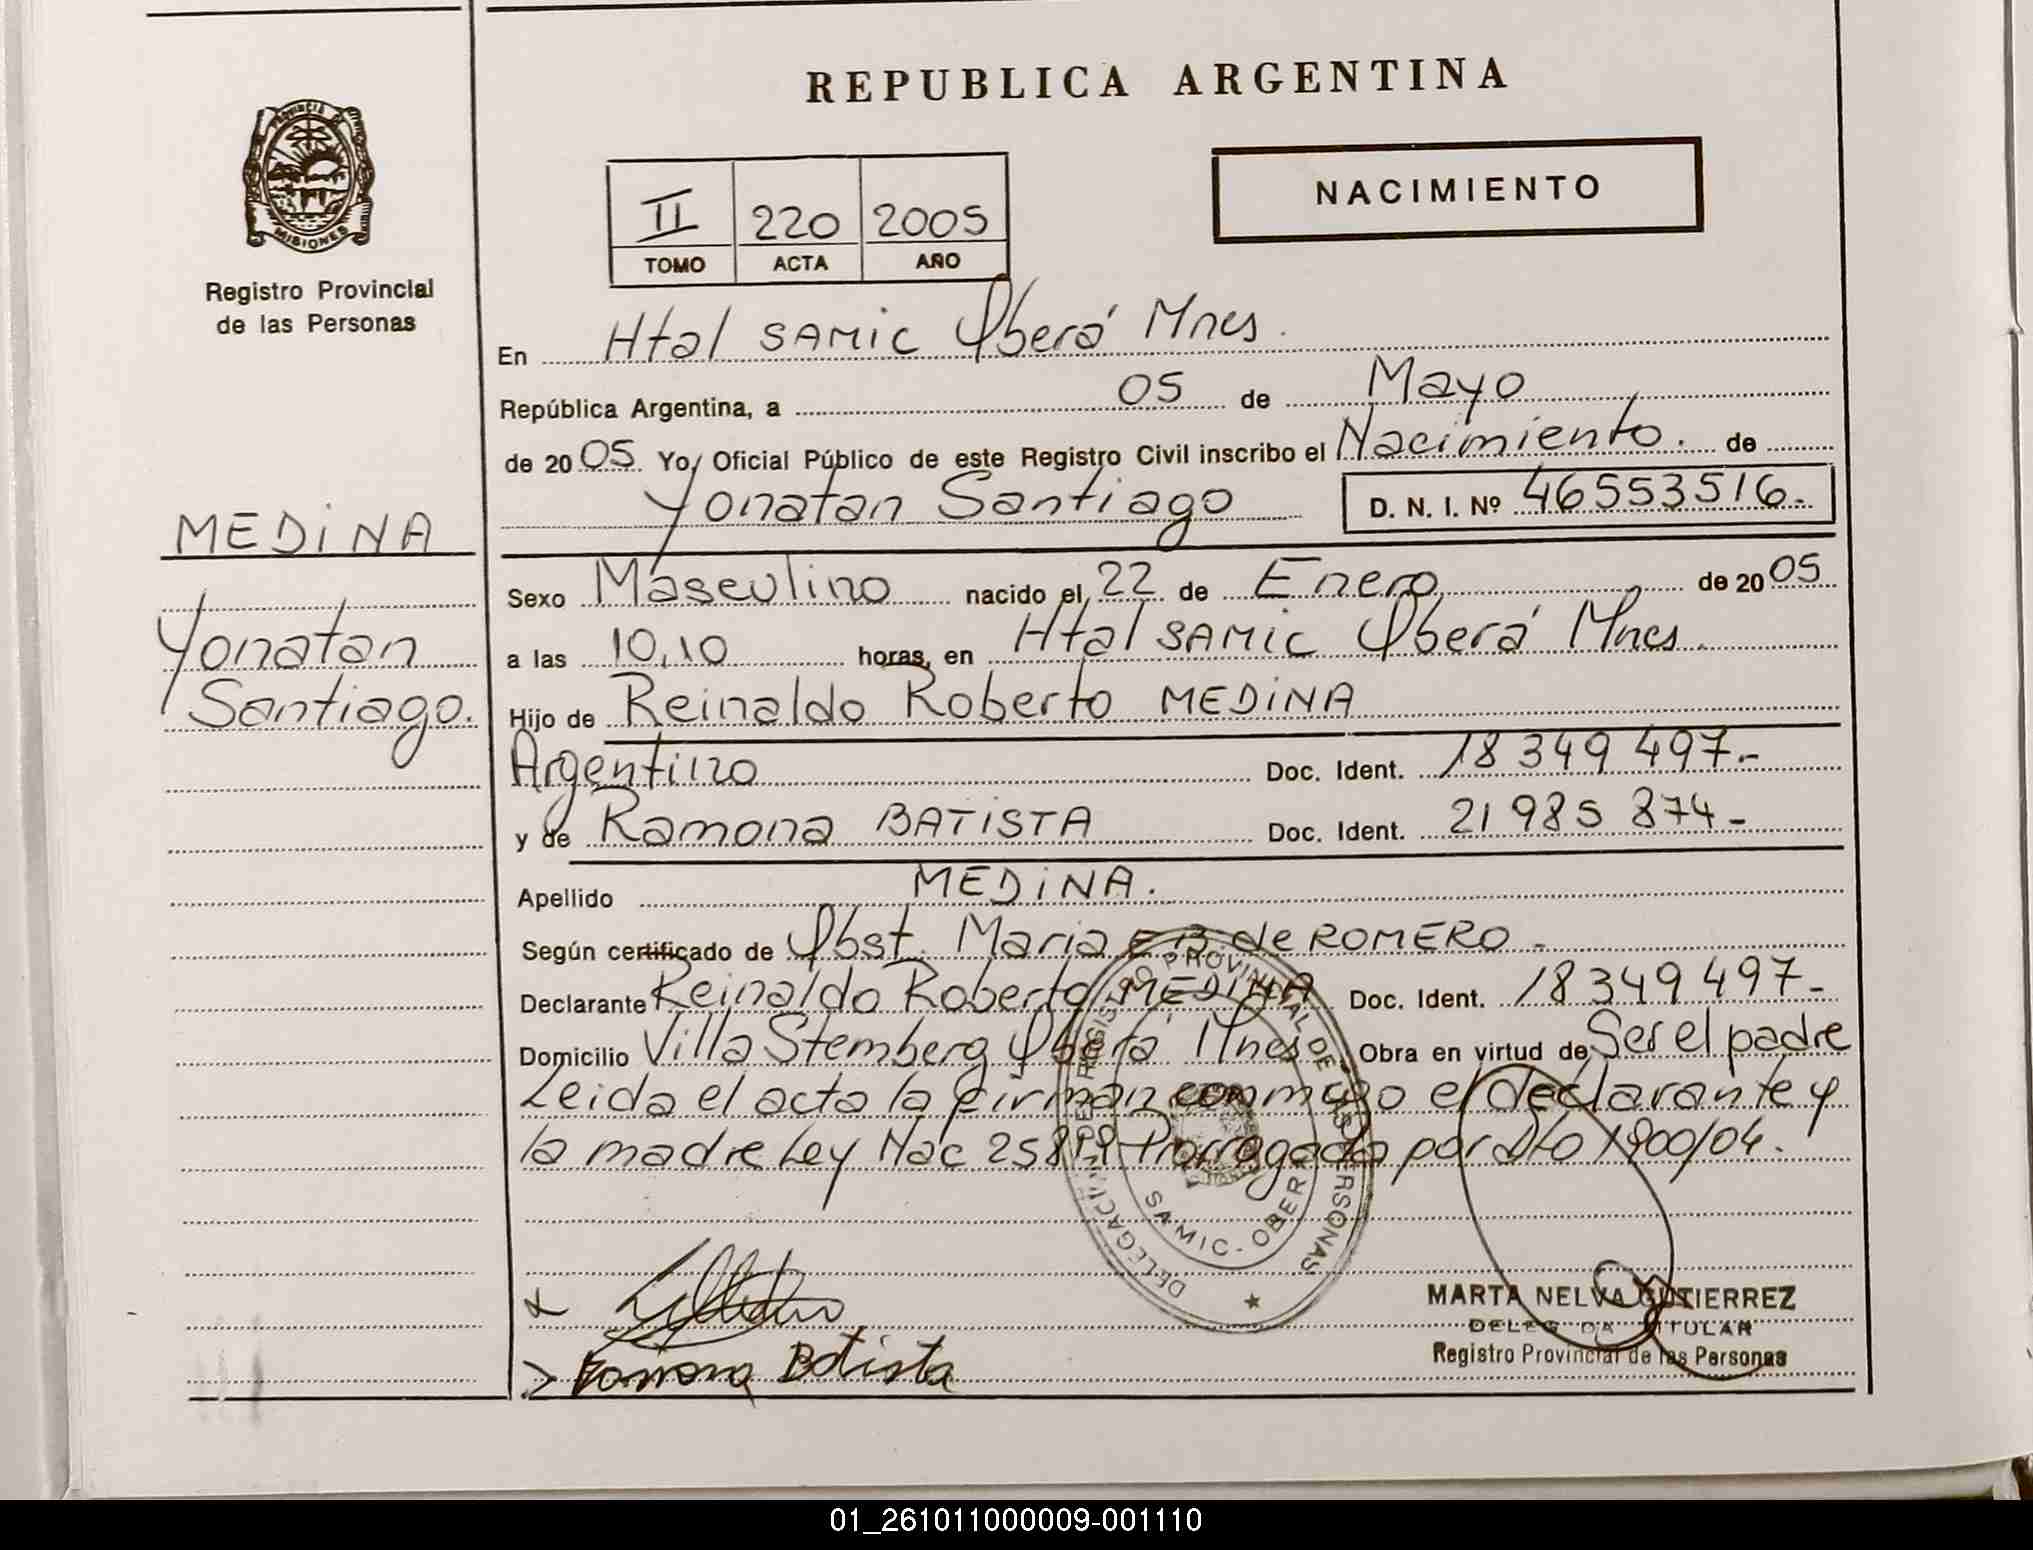 REPUBLICA ARGENTINA
PROVINCIA DE MISIONES
Registro Provincial
de las Personas
II 220 2005
TOMO ACTA AÑO
NACIMIENTO
En Htal SAMIC Oberá Mnes.
República Argentina, a 05 de Mayo
de 2005. Yo, Oficial Público de este Registro Civil inscribo el Nacimiento. de
Yonatan Santiago D. N. I. Nº 46553516.-
MEDINA
Yonatan
Santiago.
Sexo Masculino nacido el 22 de Enero de 2005
a las 10,10 horas, en Htal SAMIC Oberá Mnes.
Hijo de Reinaldo Roberto MEDINA
Argentino Doc. Ident. 18 349 497.-
y de Ramona BATISTA Doc. Ident. 21 985 874-
Apellido MEDINA.
Según certificado de Obst. Maria E B. de ROMERO.-
Declarante Reinaldo Roberto MEDINA Doc. Ident. 18349497-
Domicilio Villa Stemberg Oberá Mnes Obra en virtud de Ser el padre
Leida el acta la firman conmigo el declarante y
la madre Ley Nac 25819 Prorrogada por Dto 1900/04.
DELEGACION DEL REGISTRO PROVINCIAL DE LAS PERSONAS
SAMIC - OBERA
MARTA NELVA GUTIERREZ
DELEGADA TITULAR
Registro Provincial de las Personas
Ramona Batista
01_261011000009-001110